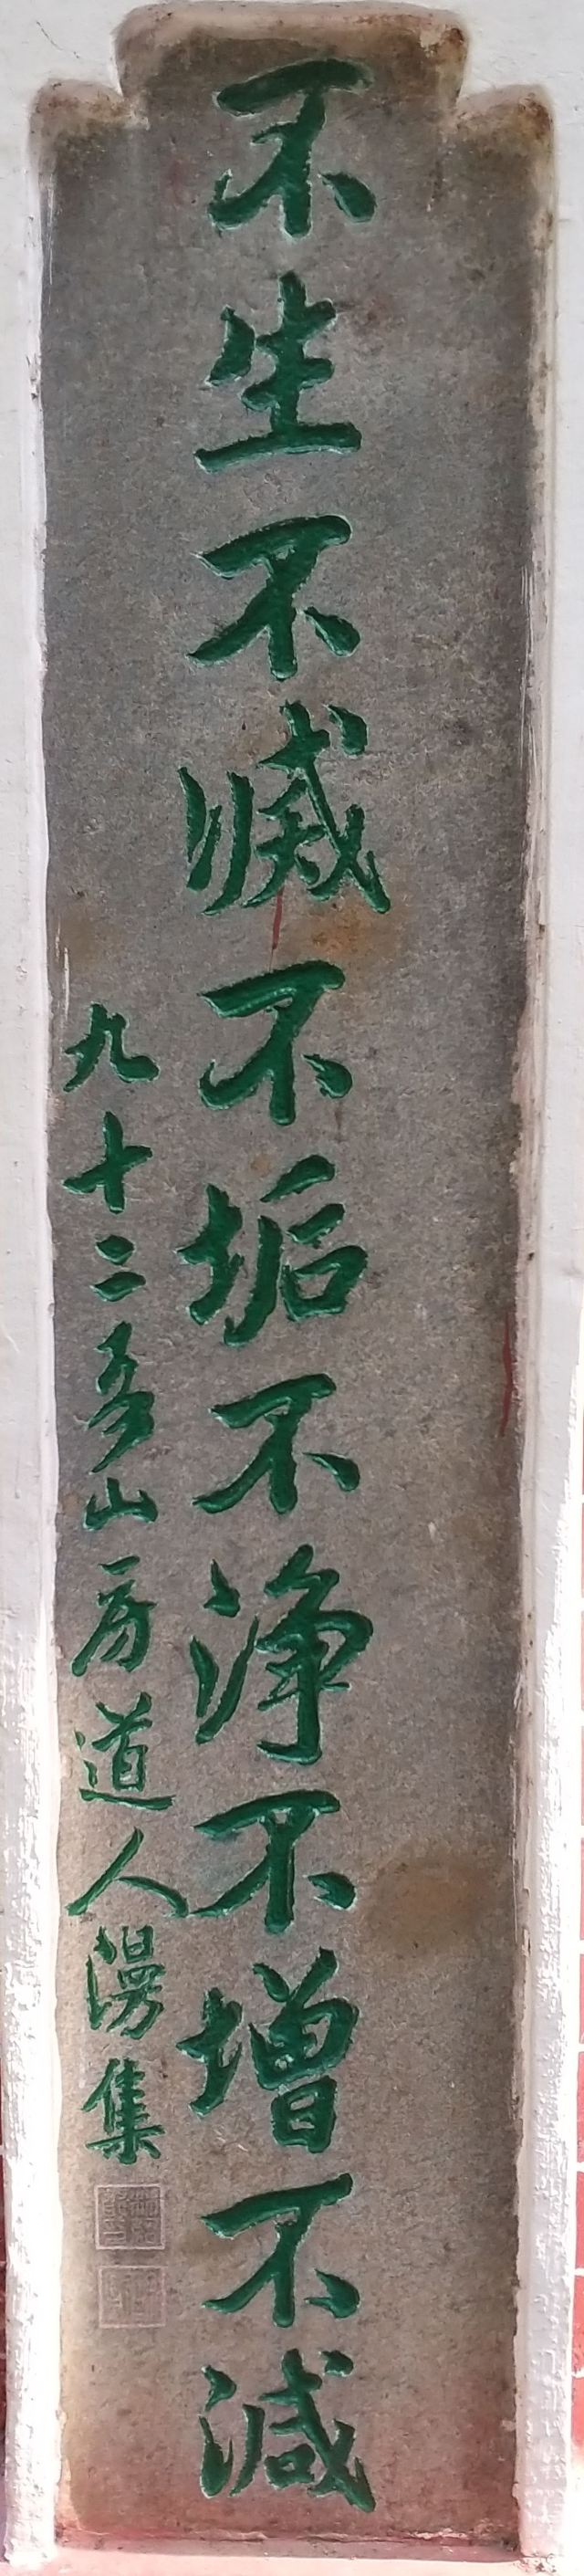 不生不滅不垢不淨不增不減
九十二秀山房道人漫集